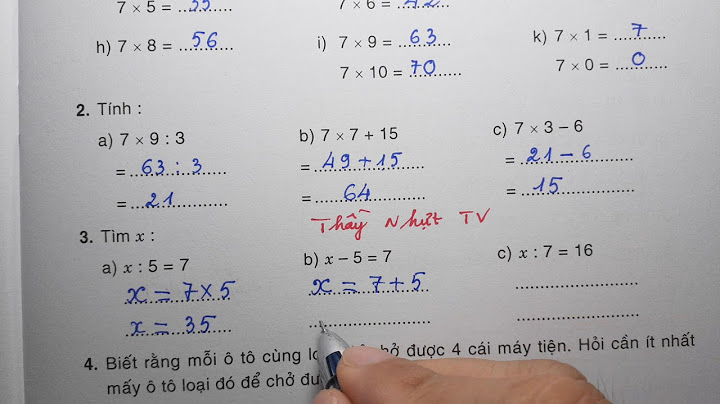 7 × 5 = 35
7 × 6 = 42
h) 7 × 8 = 56
i) 7 × 9 = 63
k) 7 × 1 = 7
7 × 10 = 70
7 × 0 = 0
2. Tính :
a) 7 × 9 : 3
b) 7 × 7 + 15
c) 7 × 3 – 6
= 63 : 3
= 49 + 15
= 21 – 6
= 21
= 64
= 15
Thầy Nhựt TV
3. Tìm x :
a) x : 5 = 7
b) x – 5 = 7
c) x : 7 = 16
x = 7 × 5
x = 7 + 5
x = 35
4. Biết rằng mỗi ô tô cùng được 4 cái máy tiện. Hỏi cần ít nhất
mấy ô tô loại đó để chở